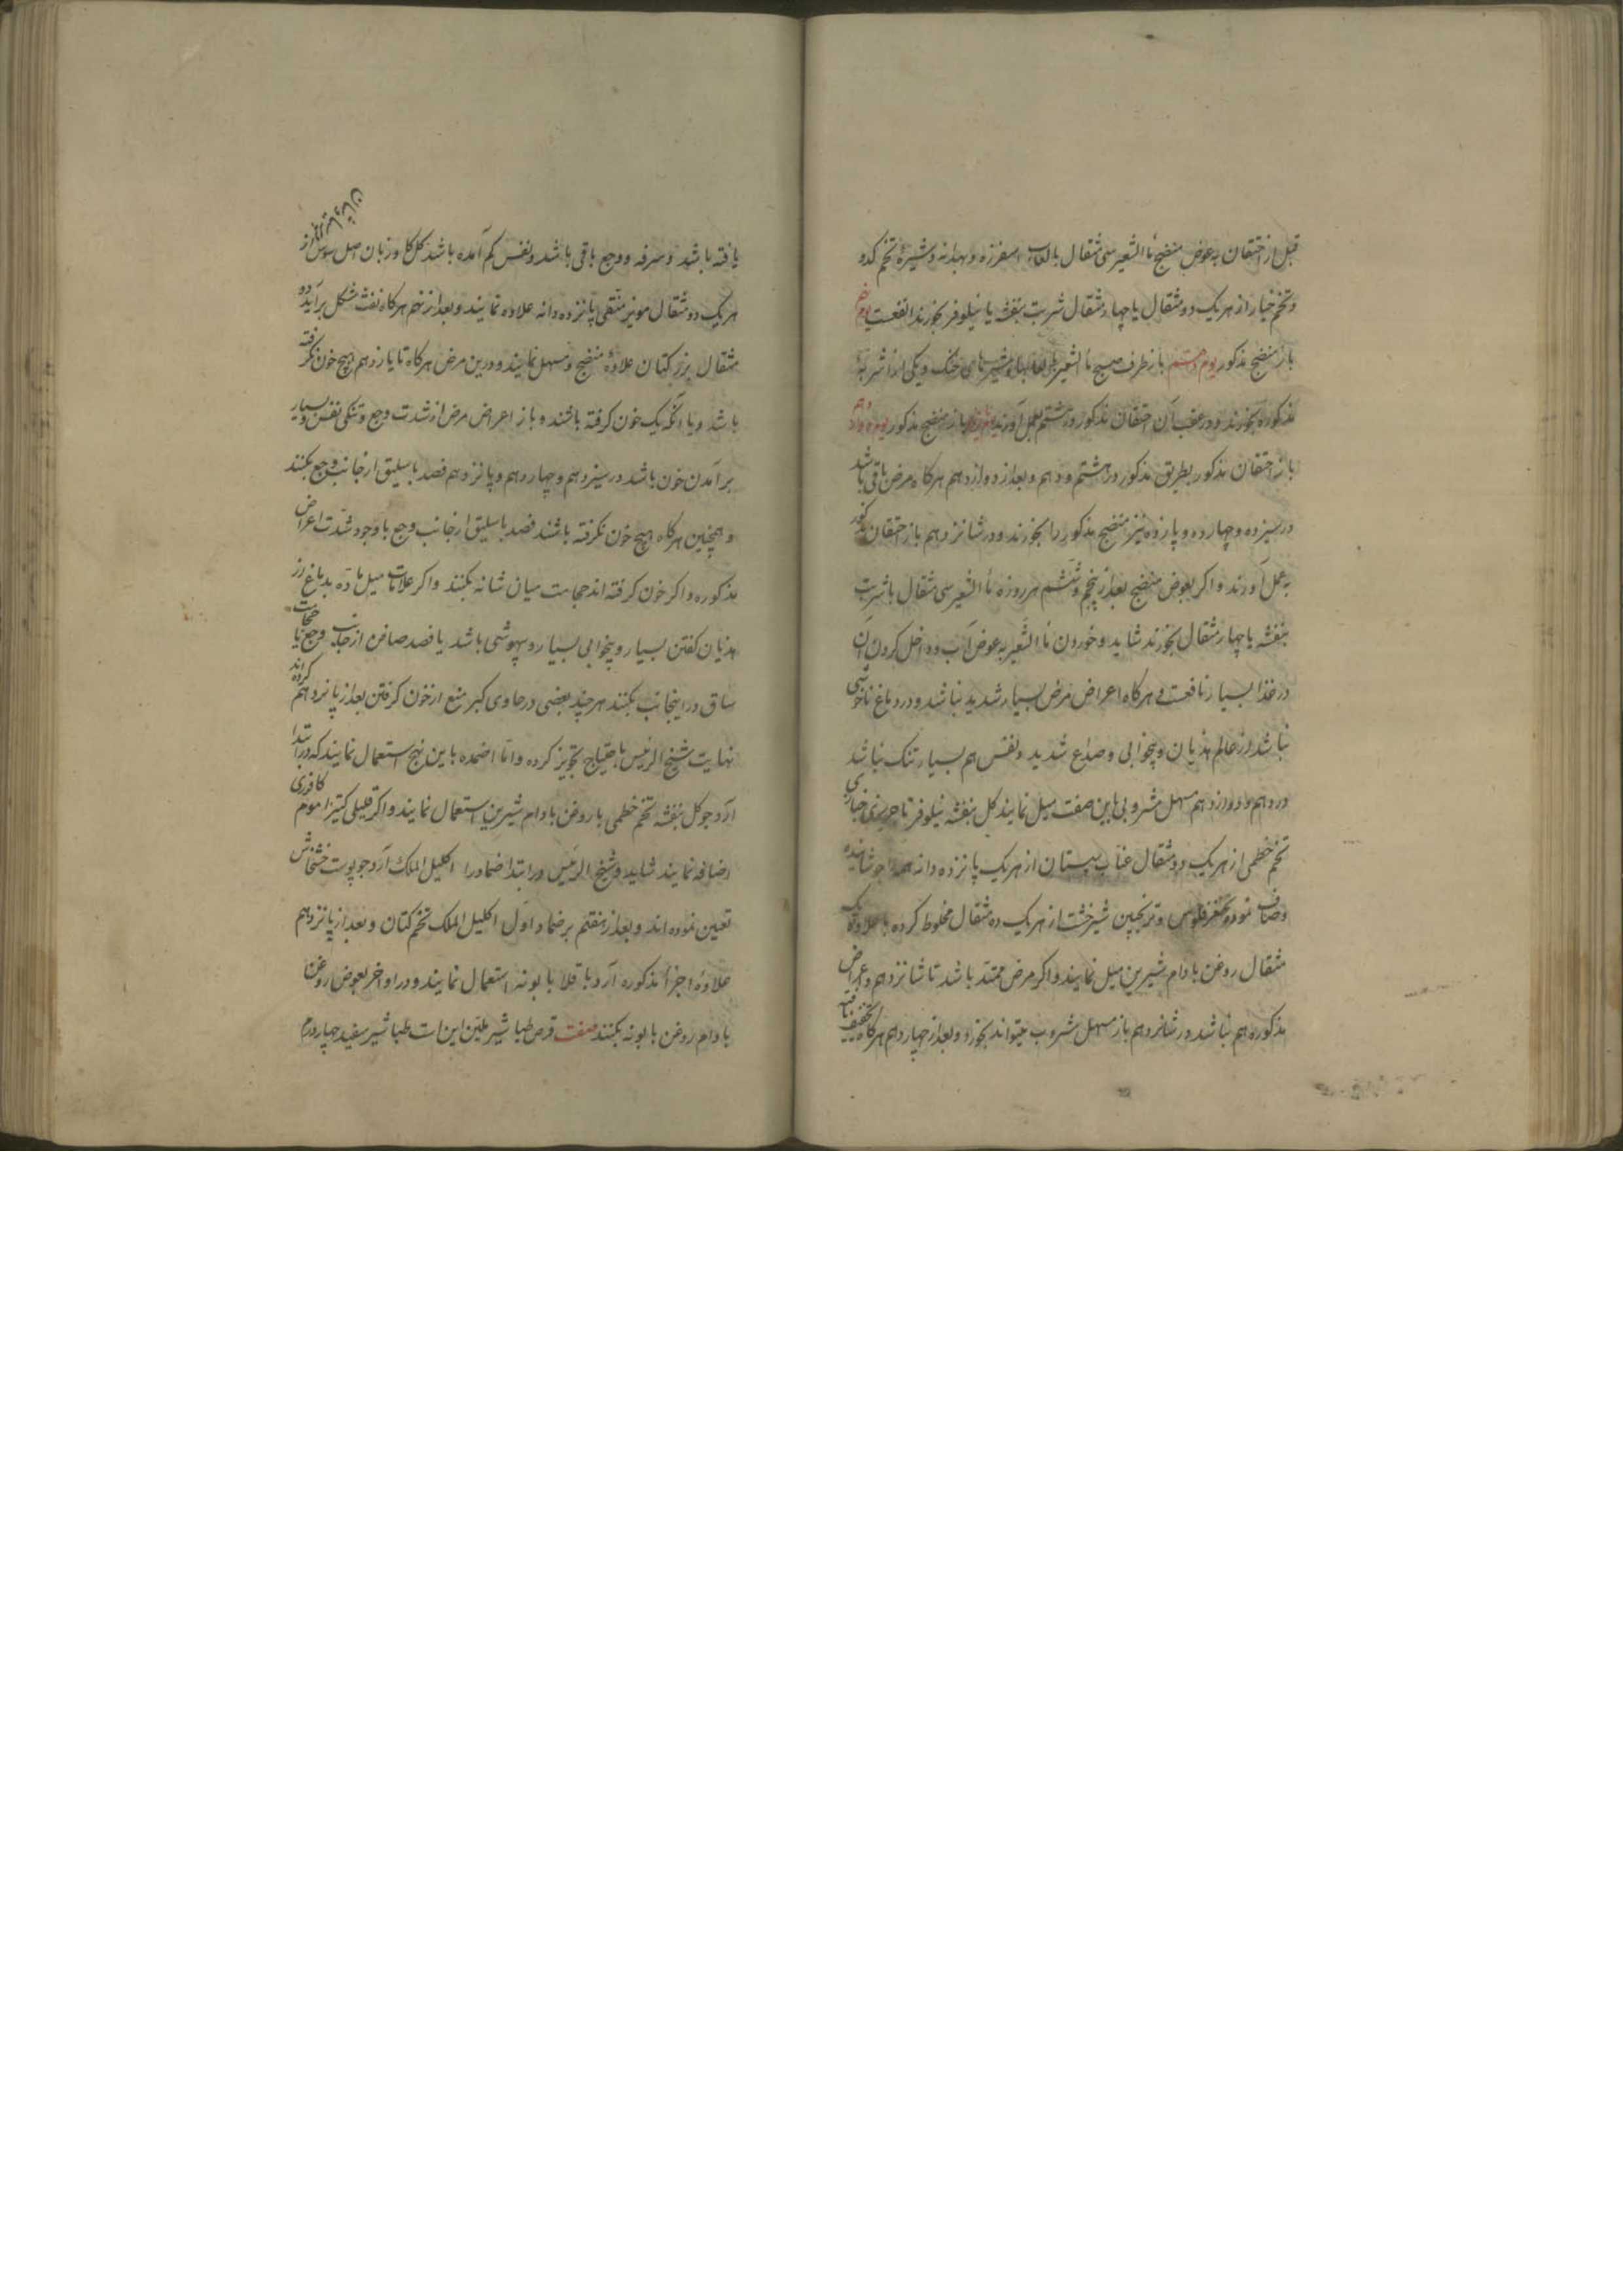 قبل از احتقان به عوض منضج ماءالشعیر سی مثقال بالعاب اسفرزه و بهدانه و شیرهٔ تخم کدو
و تخم خیار از هر یک دو مثقال یا چهار مثقال شربت بنفشه یا نیلوفر بخورند انفعست یوم
باز منضج مذکور یوم هشتم باز طرف صبح ماءالشعیر با لعابها و شیرهای خنک و یکی از اشربهٔ
مذکوره بخورند و در عقب آن احتقان مذکور در هشتم بعمل آورند باز منضج مذکور
باز احتقان مذکور بطریق مذکور در هشتم و دهم و بعد از دوازدهم هرگاه مرض باقی باشد
در سیزده و چهارده و پانزده نیز منضج مذکور را بخورند و در شانزدهم باز احتقان مذکور
به عمل آورند و اکر بعوض منضج بعد از پنجم و ششم هر روزه ماءالشعیر سی مثقال با شربت
بنفشه یا چهار مثقال بخورند شاید و خوردن ماءالشعیر به عوض آب و داخل کردن آن
در غذا بسیار نافعست و هرکاه اعراض مرض بسیار شدید نباشد و در دماغ ناخوشی
نباشد از عالم هذیان و بیخوابی و صداع شدید و نفس هم بسیار تنک نباشد
در دهم و دوازدهم مسهل مشروبی باین صفت میل نمایند کل بنفشه نیلوفر تاجریزی خبازی
تخم خطمی از هر یک دو مثقال عناب سپستان از هر یک پانزده دانه همه را جوشانیده
و صاف نموده مغز فلوس و ترنجبین شیرخشت از هر یک ده مثقال مخلوط کرده با علاوهٔ یک
مثقال روغن بادام شیرین میل نمایند و اکر مرض ممتد باشد تا شانزدهم و اعراض
مذکوره هم نباشد در شانزدهم باز مسهل مشروب میتواند بخورد و بعد از چهاردهم هرکاه تخفیف
یافته باشد و سرفه و وجع باقی باشد و نفس کم آمده باشد کل کاوزبان اصل سوس از
هر یک دو مثقال مویز منقی پانزده دانه علاوه نمایند و بعد از نهم هرکاه نفث مشکل برآید دو
مثقال بزر کتان علاوهٔ منضج و مسهل نمایند و درین مرض هرکاه تا یازدهم هیچ خون نکرفته
باشد و یا آنکه یک خون کرفته باشند و باز اعراض مرض از شدت وجع و تنکی نفس و بسیار
برآمدن خون باشد در سیزدهم و چهاردهم و پانزدهم فصد باسلیق از جانب وجع بکنند
و همچنین هرکاه هیچ خون نکرفته باشند فصد باسلیق از جانب وجع با وجود شدت اعراض
مذکوره و اکر خون کرفته اند حجامت میان شانه بکنند و اکر علامات میل ماده بدماغ از
هذیان کفتن بسیار و بیخوابی بسیار و بیهوشی باشد یا فصد صافن از جانب وجع یا حجامت
ساق در اینجانب بکنند هرچند بعضی در حاوی کبیر منع از خون کرفتن بعد از پانزدهم کرده اند
نهایت شیخ الرئیس باحتیاج تجویز کرده و اما اضمده باین نهج استعمال نمایند که در ابتدا
آرد جو کل بنفشه تخم خطمی با روغن بادام شیرین استعمال نمایند و اکر قلیلی کتیرا موم کافوری
اضافه نمایند شاید و شیخ الرئیس در ابتدا ضماد را اکلیل الملک آرد جو پوست خشخاش
تعیین نموده اند و بعد از هفتم بر ضماد اول اکلیل الملک تخم کتان و بعد از پانزدهم
علاوهٔ اجزاء مذکوره آرد باقلا بابونه استعمال نمایند و در اواخر بعوض روغن
بادام روغن بابونه بکنند صفت قرص طباشیر ملین این است طباشیر سفید چهار درم